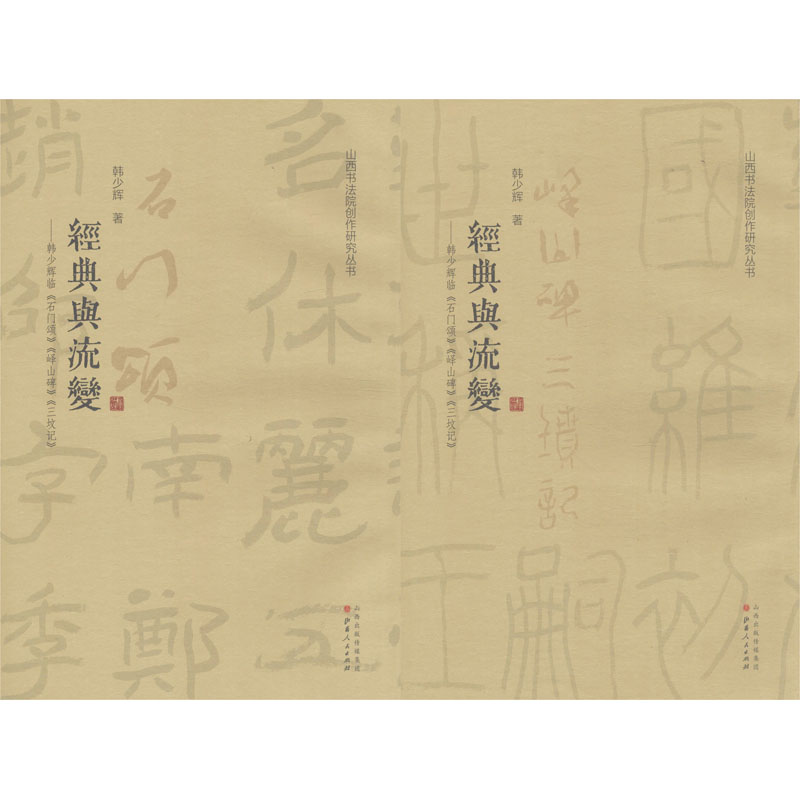 山西书法院创作研究丛书
石门頌
韩少辉 著
經典與流變
——韩少辉临《石门颂》《峄山碑》《三坟记》
山西出版传媒集团
山西人民出版社
名休麗五
南鄭
趙邵字季
山西书法院创作研究丛书
嶧山碑三墳記
韩少辉 著
經典與流變
——韩少辉临《石门颂》《峄山碑》《三坟记》
山西出版传媒集团
山西人民出版社
國維初
嗣
世稱王